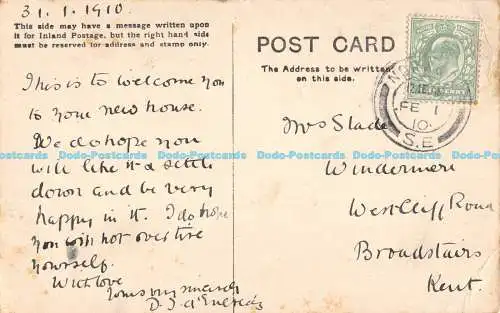 31.1.1910.
This side may have a message written upon
it for Inland Postage, but the right hand side
must be reserved for address and stamp only.
This is to welcome you
to your new house.
We do hope you
will like it & settle
down and be very
happy in it. I do hope
you will not over tire
yourself.
With love
Yours very sincerely
POST CARD
The Address to be written
on this side.
FE 1
10
S.E
Mrs Slade
Windermere
Westcliff Road
Broadstairs
Kent.
Dodo-Postcards Dodo-Postcards Dodo-Postcards Dodo-Postcards Dodo-Postcards Dodo-Postcards